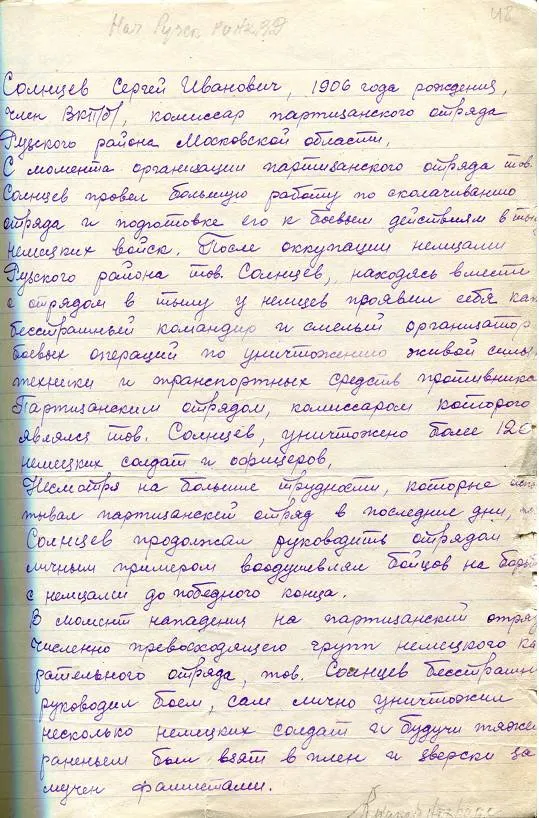 48
Нач Рузск РО НКВД
Солнцев Сергей Иванович, 1906 года рождения,
член ВКП/б/, комиссар партизанского отряда
Рузского района Московской области.
С момента организации партизанского отряда тов.
Солнцев провел большую работу по сколачиванию
отряда и подготовке его к боевым действиям в ты
немецких войск. После оккупации немцами
Рузского района тов. Солнцев, находясь вместе
с отрядом в тылу у немцев проявил себя как
бесстрашный командир и смелый организатор
боевых операций по уничтожению живой силы
техники и транспортных средств противника.
Партизанским отрядом, комиссаром которого
являлся тов. Солнцев, уничтожено более 120
немецких солдат и офицеров.
Несмотря на большие трудности, которые испы
тывал партизанский отряд в последние дни,
Солнцев продолжал руководить отрядом
личным примером воодушевлял бойцов на борь
с немцами до победного конца.
В момент нападения на партизанский отряд
численно превосходящего групп немецкого ка
рательного отряда, тов. Солнцев бесстрашн
руководил боем, сам лично уничтожил
несколько немецких солдат и будучи тяжел
раненым был взят в плен и зверски за
мучен фашистами.